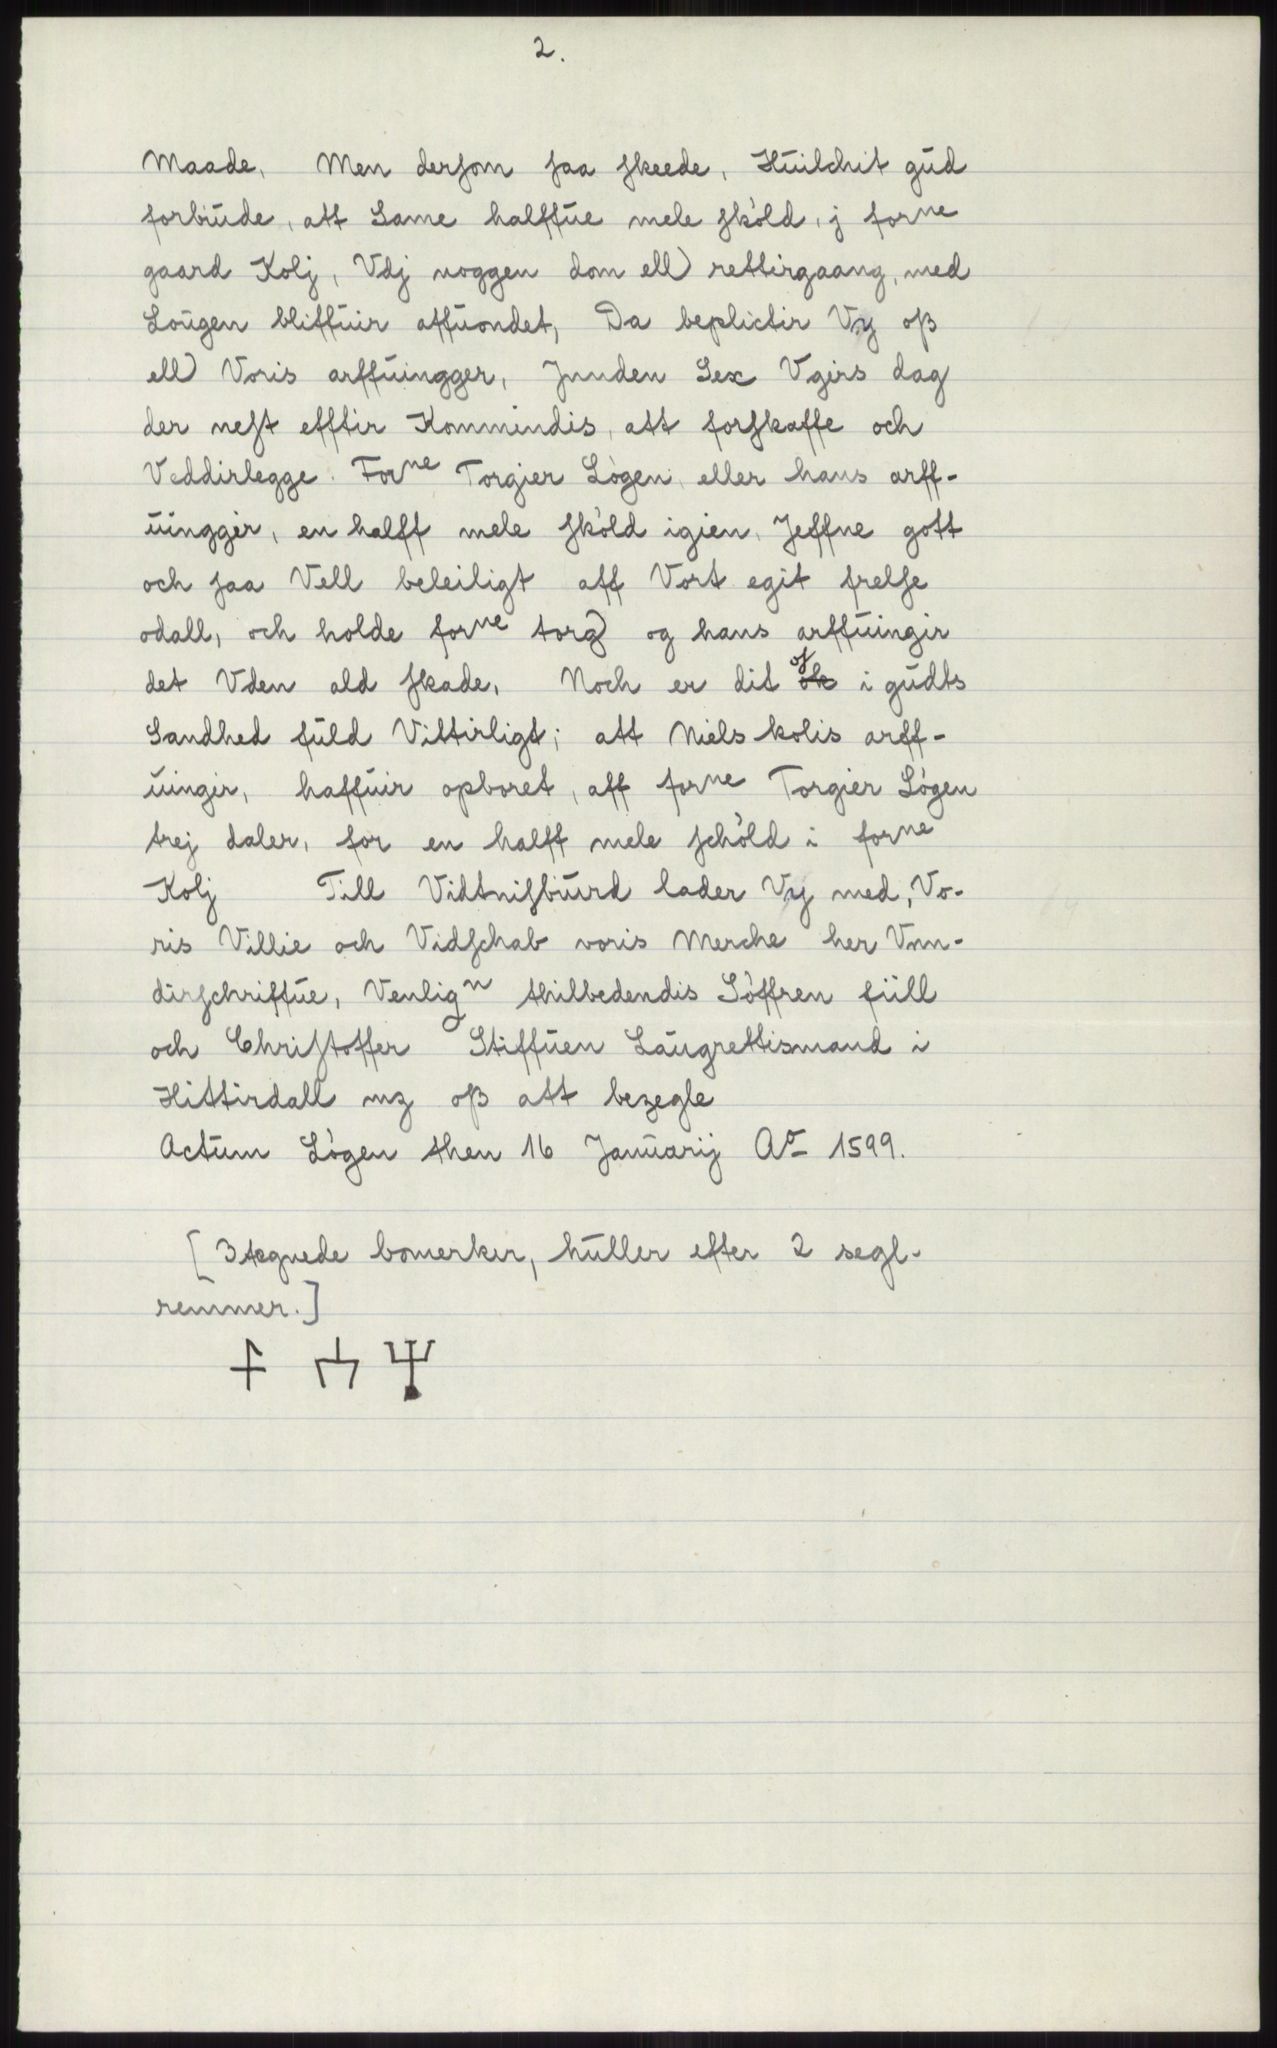 2.
Maade, Men derſom ſaa ſkeede, Hŭilchit gŭd
forbiŭde, att Same halffŭe mele ſkòld, j forne
gaard Kolj, Vdj noggen dom ell) rettirgaang, med
Loŭgen bliffŭir affŭondet, Da beplictir Vy oß
ell) Voris arffŭingger, Jnnden Sex Vgirs dag
der neſt efftir Kommindis, att forſkaffe och
Veddirlegge Forne Torgier Lògen, eller hans arff-
ŭinggir, en halff mele ſkòld igien, Jeffne gott
och ſaa Vell beleiligt aff Vort egit frelſe
odall, och holde forne torg) og hans arffŭingir
det Vden ald ſkade, Noch er dit oſ ok i gŭdts
Sandhed fŭld Vittirligt; att Niels kolis arff-
ŭingir, haffŭir opboret, aff forne Torgier Lògen
trej daler, for en halff mele ſchòld i forne
Kolj Till Vidtniſbŭrd lader Vy med, Vo-
ris Villie och Vidſchab voris Merche her Vnn-
dirſchriffŭe, Venlign thilbedendis Sòffren fŭll
och Chriſtoffer Stiffŭen Laŭgrettismand i
Hittirdall mz oß att bezegle
Actŭm Lògen then 16 Janŭarij Ao 1599.
[3 tegnede bomerker, hŭller efter 2 segl-
remmer.]